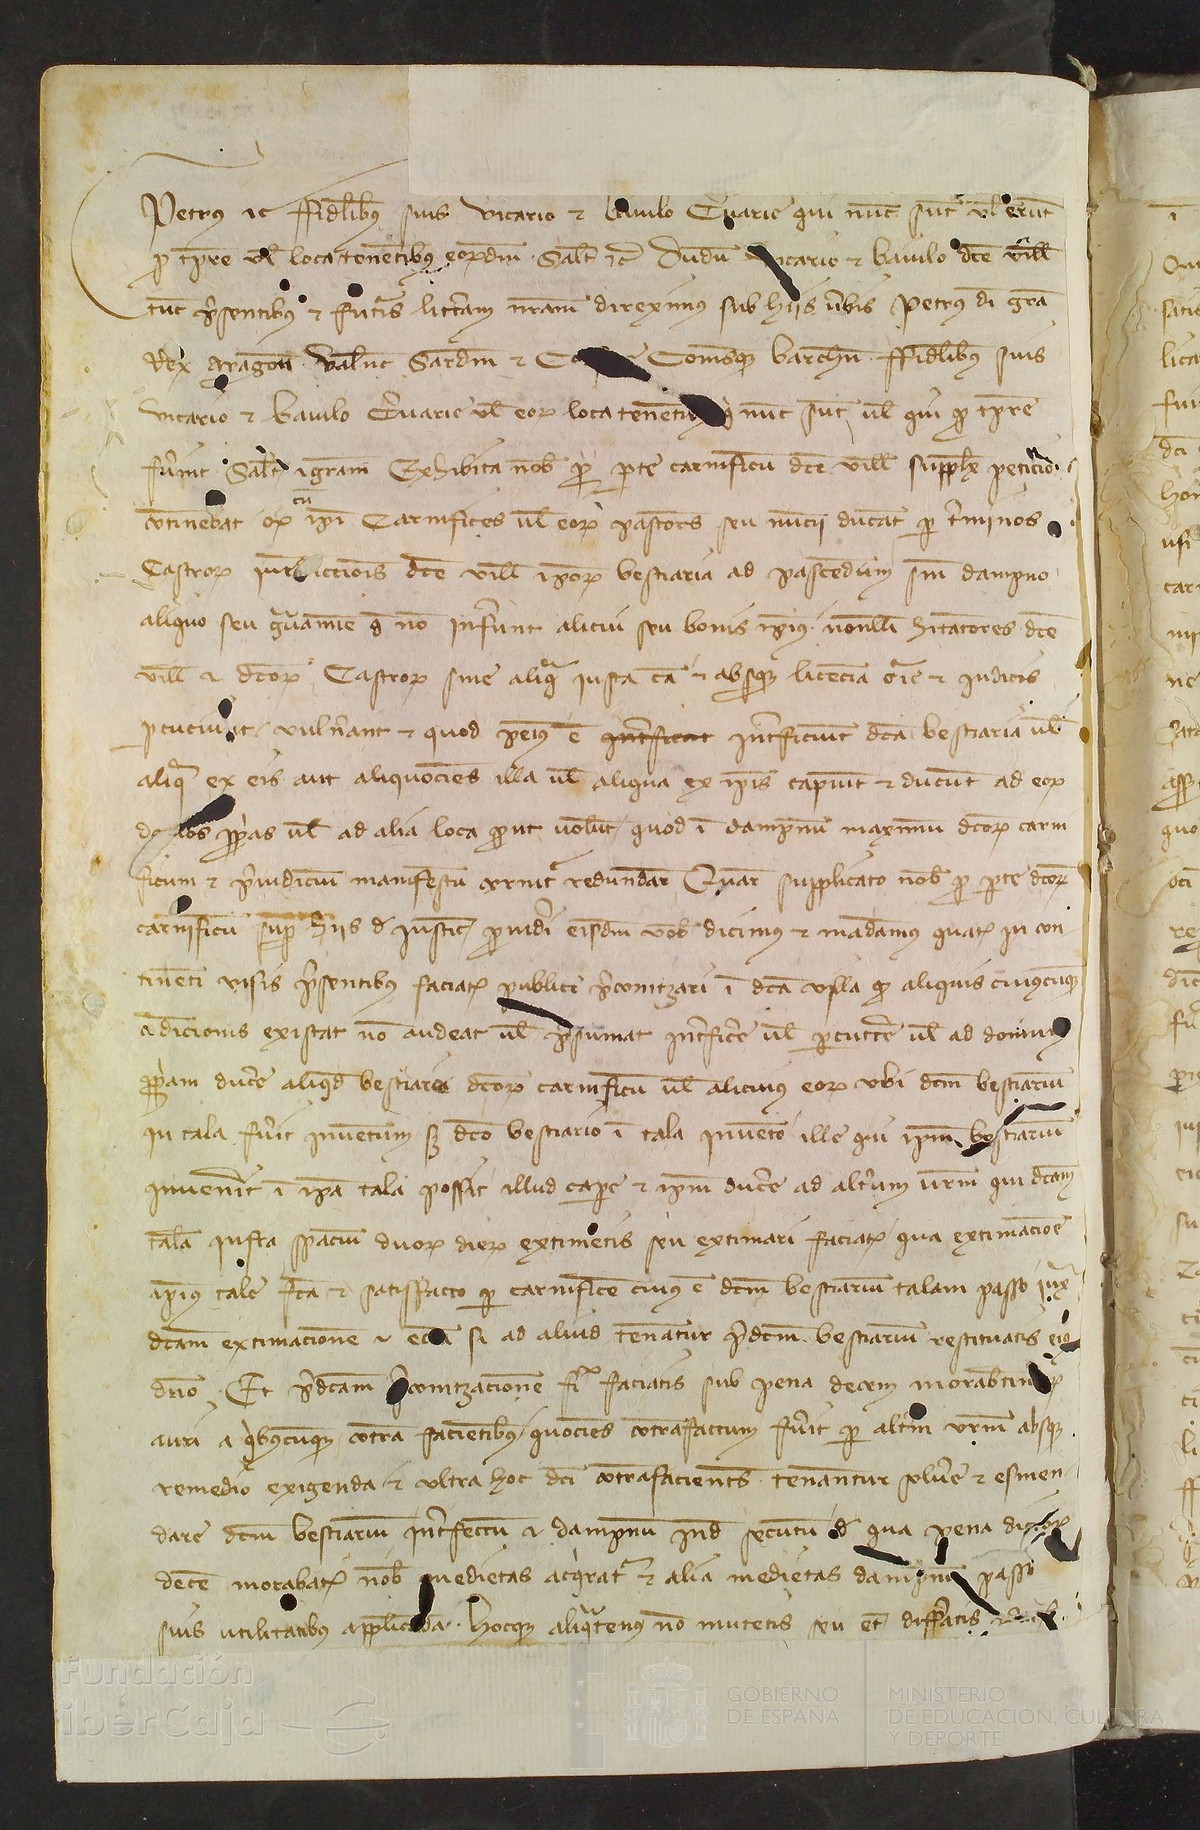 Petrus ⁊c ffidelibus suis vicario ⁊ baiulo Cervarie qui nunc sunt vel erunt
pro tempore vel loca tenentibus eorumdem Salutem ⁊c Dudum vicario ⁊ baiulo dicte ville
tunc presentibus ⁊ futuris litteram nostram direximus sub hiis verbis Petrus dei gratia
Rex Aragonum Valencie Sardinie ⁊ Comesque barchinone ffidelibus suis
vicario ⁊ baiulo Cervarie vel eorum loca tenentibus qui nunc sunt vel qui pro tempore
fuerint Salutem ⁊ gratiam Exhibita nobis pro parte carnificum dicte ville supplex peticio
continebat quod cum ipsi Carnifices vel eorum pastores seu nuncii ducant per terminos
Castrorum iurisdiccionis dicte ville ipsorum bestiaria ad pascendum sine dampno
aliquo seu gravamine quod non inferunt alicui seu bonis ipsius nonnulli habitatores dicte
ville ⁊ dictorum Castrorum sine aliqua iusta causa ⁊ absque licencia curie ⁊ iudicis
percuciunt vulnerant ⁊ quod peius est interficiunt dicta bestiaria vel
aliqua ex eis aut aliquociens illa vel aliqua ex ipsis capiunt ⁊ ducunt ad eorum
domos proprias vel ad alia loca prout volunt quod in dampnum maximum dictorum carni
ficum ⁊ preiudicium manifestum cernitur redundare Quare supplicato nobis pro parte dictorum
carnificum super hiis de iusticia provideri eisdem vobis dicimus ⁊ mandamus quatenus in con
tinenti visis presentibus faciatis publice preconitzari in dicta villa quod aliquis cuiuscumque
condicionis existat non audeat vel presumat interficere vel percutere vel ad domum
propriam ducere aliquod bestiarium dictorum carnificum vel alicuius eorum ubi dictum bestiarium
in tala fuerit inventum set dicto bestiario in tala invento ille qui ipsum bestiarium
invenerit in ipsa tala possit illud capere ⁊ ipsum ducere ad alterum vestrum qui dictam
talam iusta spacium duorum dierum extimetis seu extimari faciatis qua extimacione
ipsius tale facta ⁊ satisfacto per carnificem cuius est dictum bestiarium talam passo iuxta
dictam extimacionem ⁊ eciam si ad aliud teneatur predictum bestiarium restituatis eius
domino Et predictam preconitzacionem fieri faciatis sub pena decem morabatinorum
auri a quibuscumque contra facientibus quociens contrafactum fuerit per alterum vestrum absque
remedio exigenda ⁊ ultra hoc dicti contrafacientes teneantur solvere ⁊ esmen
dare dictum bestiarium interfectum ⁊ dampnum inde secutum de qua pena dictorum
decem morabatinorum nobis medietas acquiratur ⁊ alia medietas dampnum passo
suis utilitatibus applicanda hocque aliquatenus non mutetis seu etiam differatis